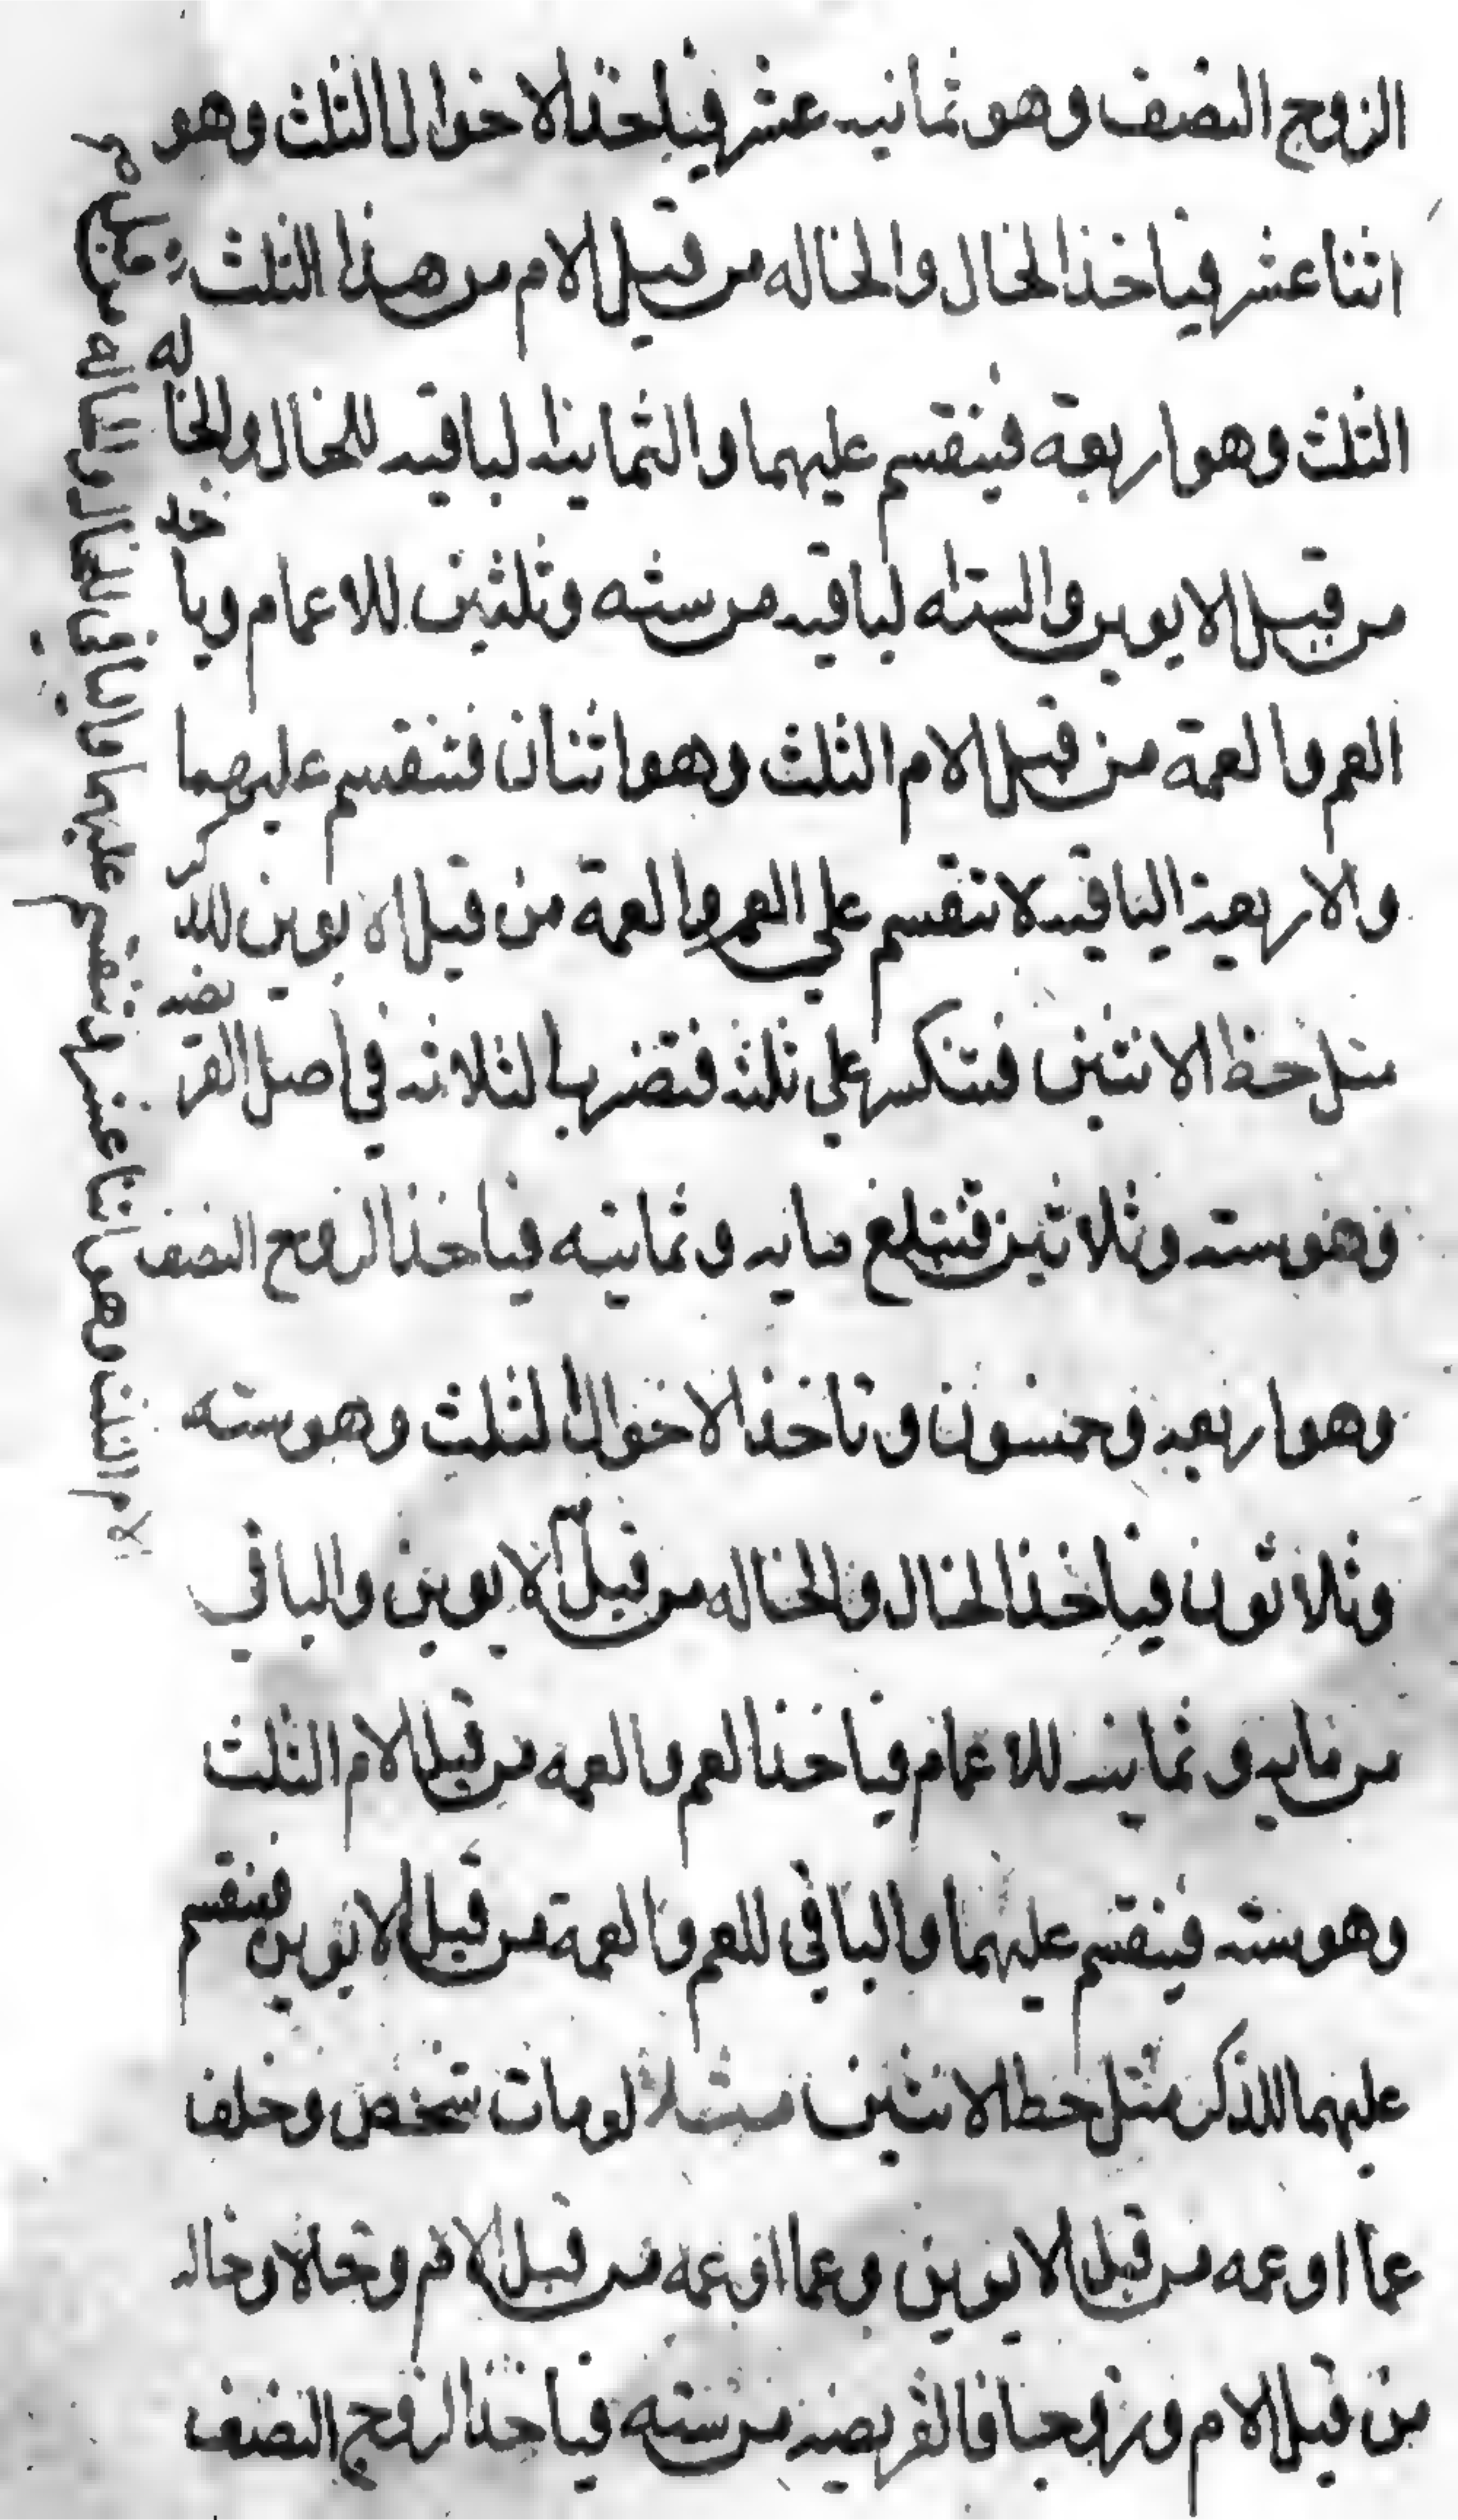 الزوج النصف وهو ثمانيه عشر فياخذ الاخوال الثلث وهو
اثنا عشر فياخذ الخال والخاله من قبل الام من هذا الثلث
الثلث وهو اربعة فينقسم عليهما والثمانيه الباقيه للخال والخاله
من قبل الابوين والسته الباقيه من سته وثلثين للاعمام وياخذ
العم والعمة من قبل الام الثلث وهو اثنان فتنقسم عليهما
والاربعة الباقيه لا تنقسم علي العم والعمة من قبل الابوين للذكر
مثل حظ الانثيين فتنكسر علي ثلثه فتضرب الثلاثه في اصل الفريضه
وهو سته وثلاثين فتبلغ مايه وثمانيه فياخذ الزوج النصف
وهو اربعه وخمسون وتاخذ الاخوال الثلث وهو سته
وثلاثون فياخذ الخال والخاله من قبل الابوين والباقي
من مايه وثمانيه للاعمام فياخذ العم والعمه من قبل الام الثلث
وهو سته فينقسم عليهما والباقي للعم والعمة من قبل الابوين فينقسم
عليهما للذكر مثل حظ الانثيين مثلا لو مات شخص وخلف
عما او عمه من قبل الابوين وعما او عمه من قبل الام وخالا وخاله
من قبل الام وزوجا فالفريضه من سته فياخذ الزوج النصف
الام الثلث وهو اثنا عشر فتنقسم عليهما والباقي للخال والخاله من قبل